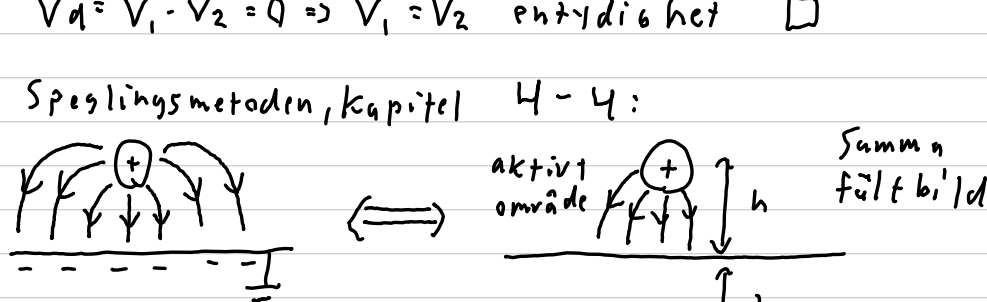 Vd = V₁ - V₂ = 0 => V₁ = V₂ entydighet □
Speglingsmetoden, kapitel 4-4:
+
aktivt
område
+
h
Samma
fältbild